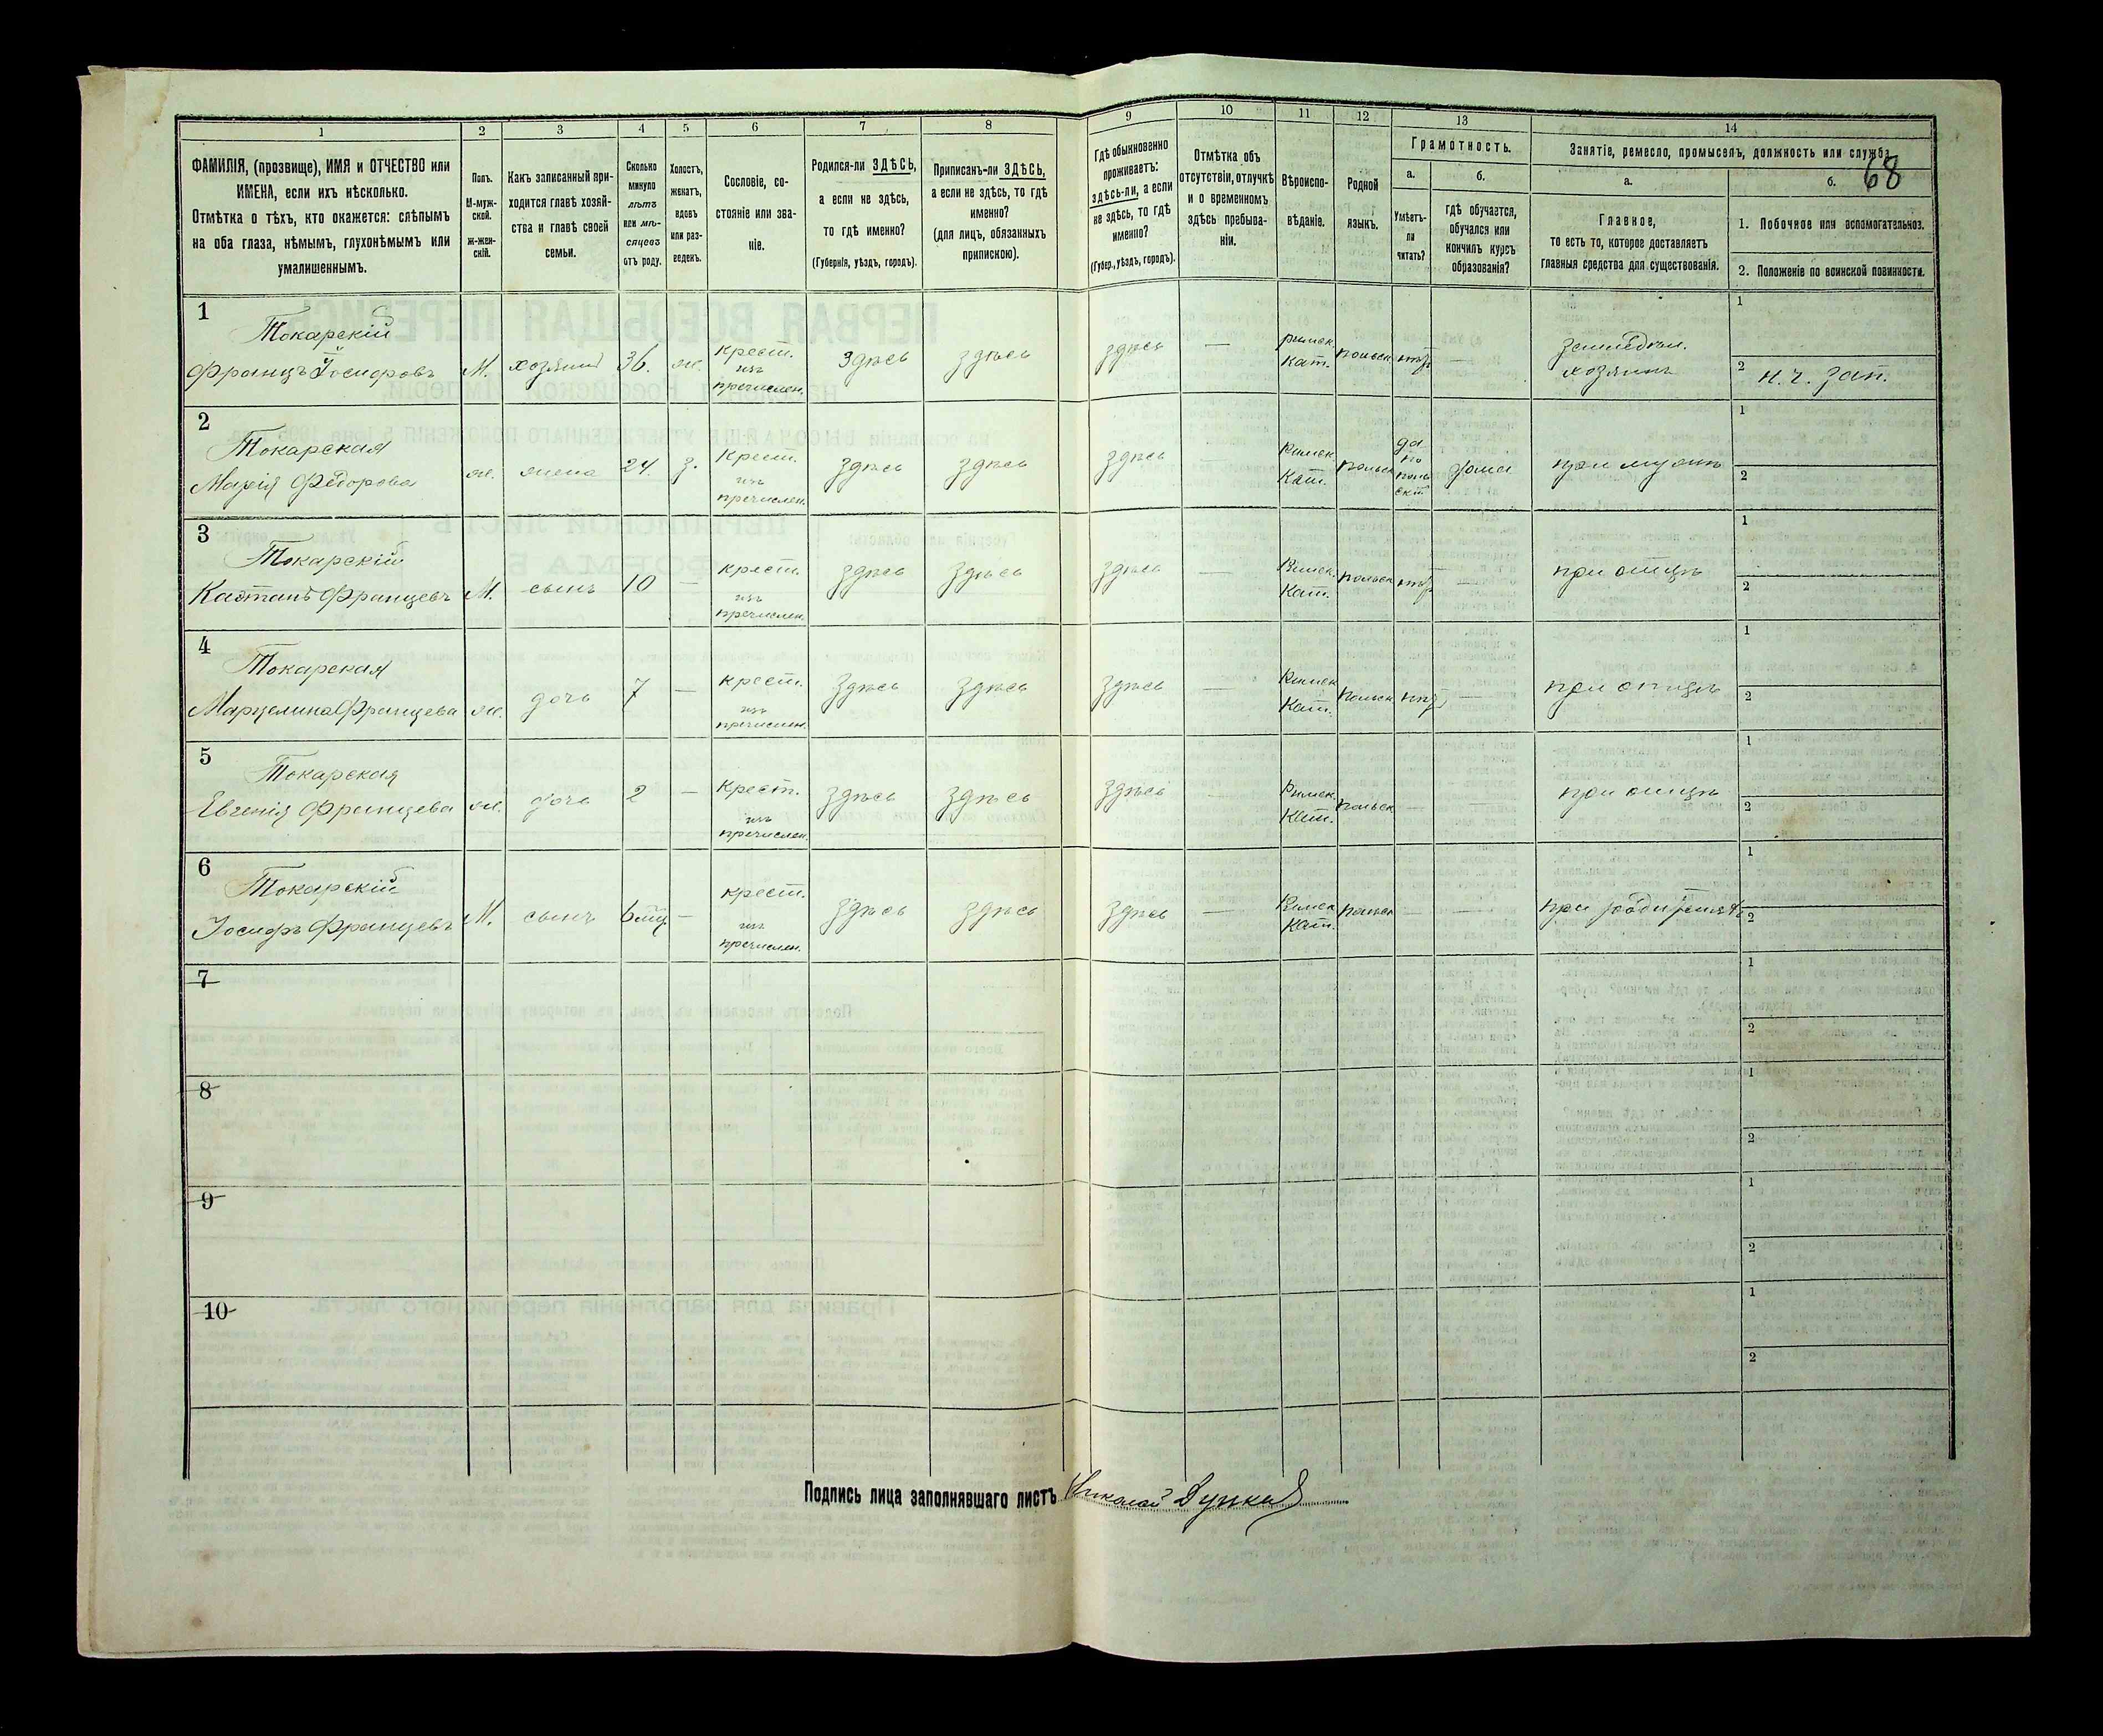 68
1 2 3 4 5 6 7 8 9 10 11 12 13 14
ФАМИЛІЯ, (прозвище), ИМЯ и ОТЧЕСТВО или
ИМЕНА, если ихъ нѣсколько.
Отмѣтка о тѣхъ, кто окажется: слѣпымъ
на оба глаза, нѣмымъ, глухонѣмымъ или
умалишеннымъ.
Полъ.
М-муж-
ской.
ж-жен-
скій.
Какъ записанный при-
ходится главѣ хозяй-
ства и главѣ своей
семьи.
Сколько
минуло
лѣтъ
или мѣ-
сяцевъ
отъ роду.
Холостъ,
женатъ,
вдовъ
или раз-
веденъ.
Сословіе, со-
стояніе или зва-
ніе.
Родился-ли ЗДѢСЬ,
а если не здѣсь,
то гдѣ именно?
(Губернія, уѣздъ, городъ).
Приписанъ-ли ЗДѢСЬ,
а если не здѣсь, то гдѣ
именно?
(для лицъ, обязанныхъ
припискою).
Гдѣ обыкновенно
проживаетъ:
здѣсь-ли, а если
не здѣсь, то гдѣ
именно?
(Губер., уѣздъ, городъ).
Отмѣтка объ
отсутствіи, отлучкѣ
и о временномъ
здѣсь пребыва-
ніи.
Вѣроиспо-
вѣданіе.
Родной
языкъ.
Грамотность.
а.
Умѣетъ-
ли
читать?
б.
гдѣ обучается,
обучался или
кончилъ курсъ
образованія?
Занятіе, ремесло, промыселъ, должность или служба
а.
Главное,
то есть то, которое доставляетъ
главныя средства для существованія.
б.
1. Побочное или вспомогательное.
2. Положеніе по воинской повинности.
1
Токарскій
Францъ Іосифовъ М. хозяинъ 36. ж. крест. изъ пречислен. здѣсь здѣсь здѣсь — римск. Кат. польск нтъ — земледѣл. хозяинъ
1
2 н. ч. зап.
2
Токарская
Марія Федорова ж. жена 24. з. Крест. изъ пречислен. здѣсь здѣсь здѣсь — Римск. Кат. польск да по поль скт дома при мужѣ
1
2
3
Токарскій
Каэтанъ Францевъ М. сынъ 10 — крест. изъ пречислен. здѣсь здѣсь здѣсь — Римск. Кат. польск нтъ — при отцѣ
1
2
4
Токарская
Марцелина Францева ж. дочь 7 — крест. изъ пречислен. здѣсь здѣсь здѣсь — Римск. Кат. польск нтъ — при отцѣ
1
2
5
Токарская
Евгенія Францева ж. дочь 2 — Крест. изъ пречислен. здѣсь здѣсь здѣсь — Римск. Кат. польск — — при отцѣ
1
2
6
Токарскій
Іосифъ Францевъ М. сынъ 6 мѣц. — крест. изъ пречислен. здѣсь здѣсь здѣсь — Римск. Кат. польск — — при
1
2
7
1
2
8
1
2
9
1
2
10
1
2
Подпись лица заполнявшаго листъ Николай